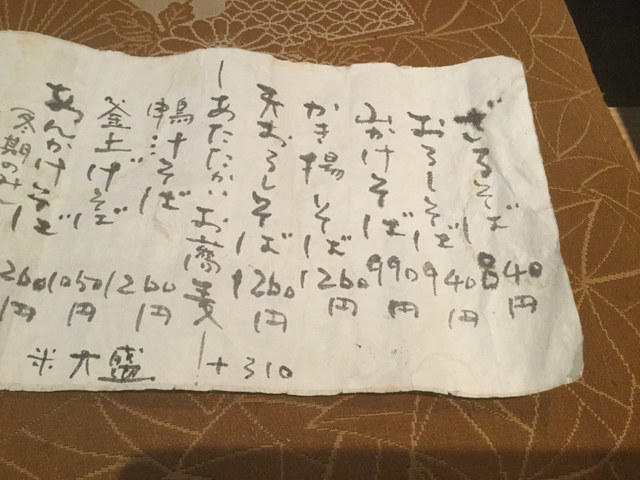 ざるそば 840円
おろしそば 940円
山かけそば 990円
かき揚そば 1260円
天おろしそば 1260円
ーあたたかいお蕎麦ー
鴨汁そば 1260円
釜上げそば 1050円
あんかけそば 1260円
冬期のみ
※大盛 +310